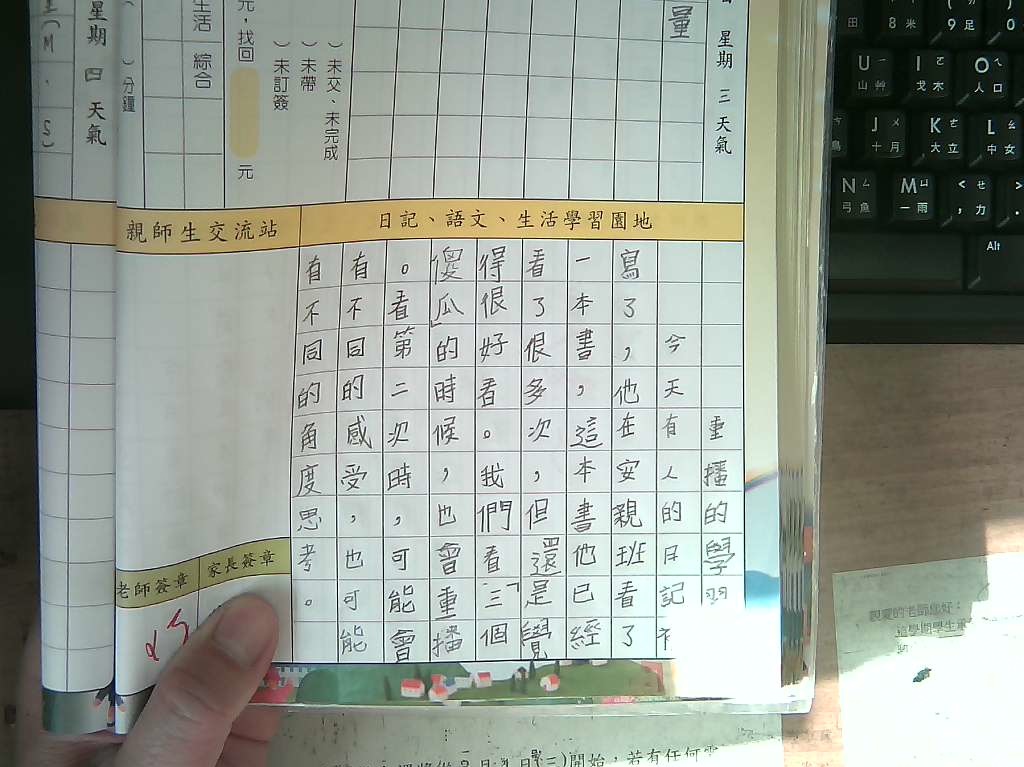 星期 三 天氣
量
）未交、未完成
）未帶
）未訂簽
元，找回 元
生活 綜合
）分鐘
星期 四 天氣
日記、語文、生活學習園地
親師生交流站
重播的學習
今天有人的日記
寫了，他在安親班看了
一本書，這本書他已經
看了很多次，但還是覺
得很好看。我們看「三個
傻瓜」的時候，也會重播
。看第二次時，可能會
有不同的感受，也可能
有不同的角度思考。
老師簽章
家長簽章
8 米
9 足
0
U 山
I 戈 木
O 人 口
J 十 月
K 大 立
L 中 女
N 弓 魚
M 一 雨
< , 力
Alt
親愛的老師您好：
這學期學生
開始，若有任何